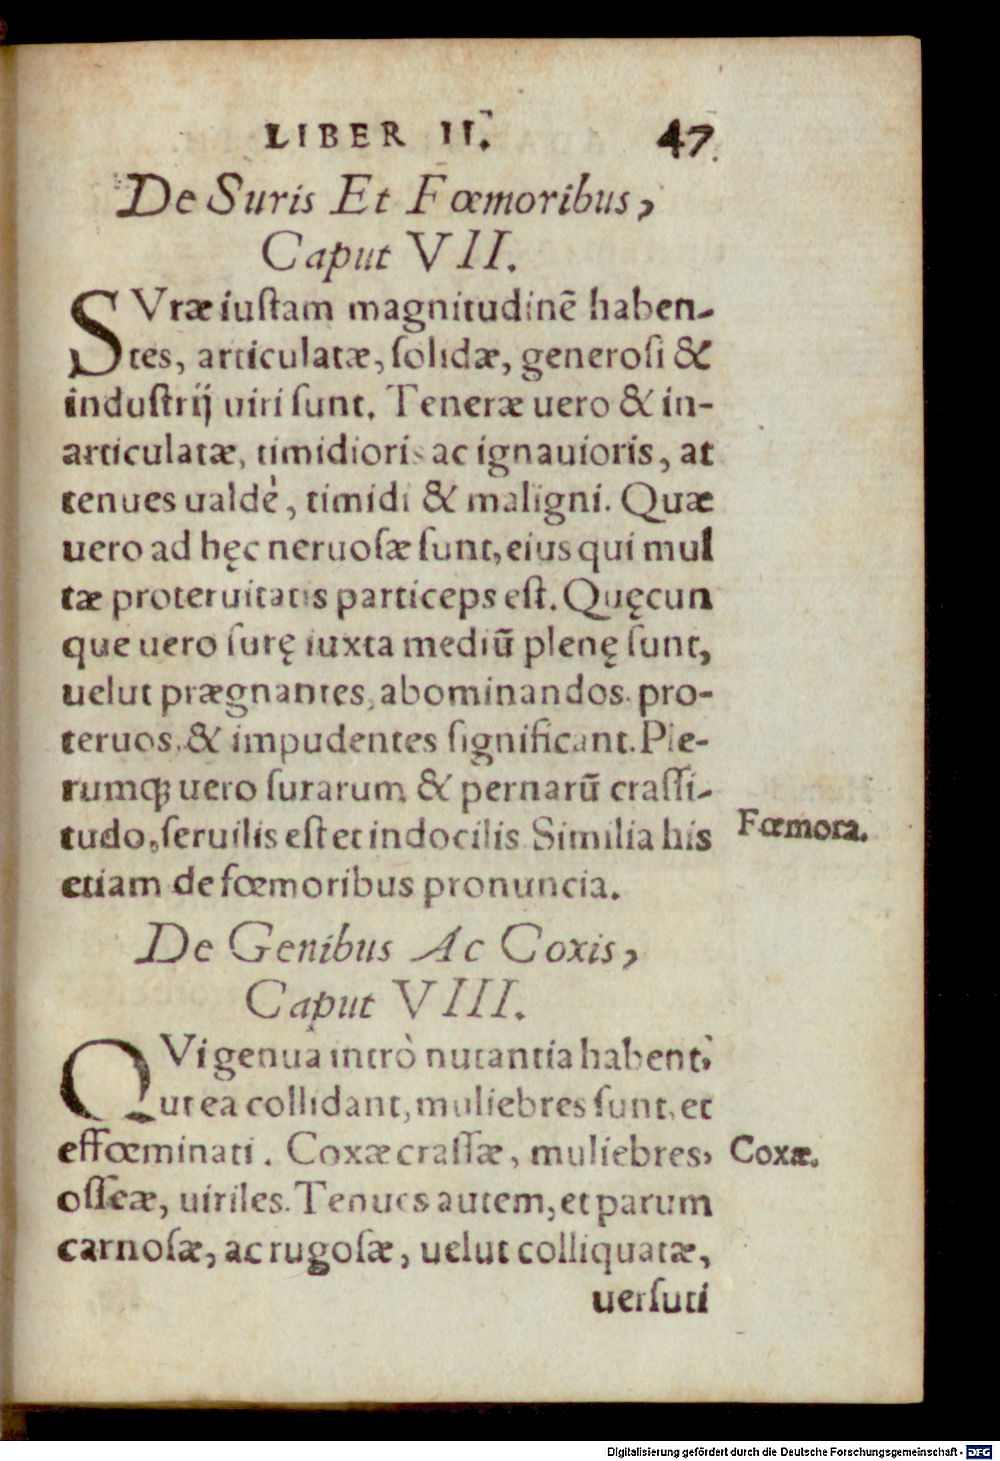 LIBER II. 47
De Suris Et Fœmoribus,
Caput VII.
SVræ iuſtam magnitudinē haben-
tes, articulatæ, ſolidæ, generoſi &
induſtrij uiri ſunt. Teneræ uero & in-
articulatæ, timidioris ac ignauioris, at
tenues ualdè, timidi & maligni. Quæ
uero ad hęc neruoſæ ſunt, eius qui mul
tæ proteruitatis particeps eſt. Quęcun
que uero ſurę iuxta mediū plenę ſunt,
uelut prægnantes, abominandos pro-
teruos, & impudentes ſignificant. Ple-
rumq; uero ſurarum & pernarū craſſi-
tudo, ſeruilis eſt et indocilis Similia his
Fœmora.
etiam de fœmoribus pronuncia.
De Genibus Ac Coxis,
Caput VIII.
QVi genua intrò nutantia habent,
ut ea collidant, muliebres ſunt, et
effœminati. Coxæ craſſæ, muliebres,
Coxæ.
oſſeæ, uiriles. Tenues autem, et parum
carnoſæ, ac rugoſæ, uelut colliquatæ,
uerſuti
Digitalisierung gefördert durch die Deutsche Forschungsgemeinschaft - DFG